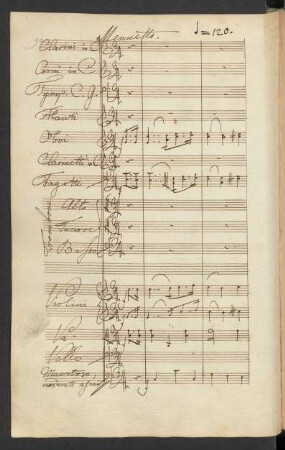 Menuetto. ♩=120.
Clarini in C
Corni in C
Tymp. C. G.
Flauti
Oboi
Clarinetti in C
Fagotti
Alti
Tenore
Bassi
Violini
Va
Vello
Maestoso
moderato